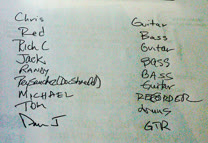 Chris Guitar
Red Bass
Rich C Guitar
Jack Bass
RANDY BASS
Guitar
MICHAEL RECORDER
Tom drums
Dan J GTR